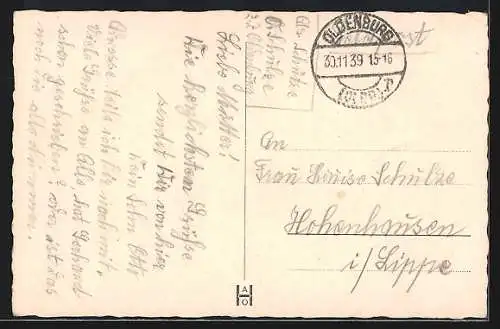 Abs. Schulze
O. Schulze
z.Zt. Oldenburg
Liebe Mutter!
Die herzlichsten Grüße
sendet Dir von hier
Dein Sohn Otto
Adresse teile ich Dir noch mit.
Viele Grüße an Alle hat Gerhard
schon geschrieben? oder ist das
noch die alte Nummer.
Feldpost
OLDENBURG
30.11.39 15-16
(OLDB)
An
Frau Luise Schulze
Hohenhausen
i/Lippe
A
O